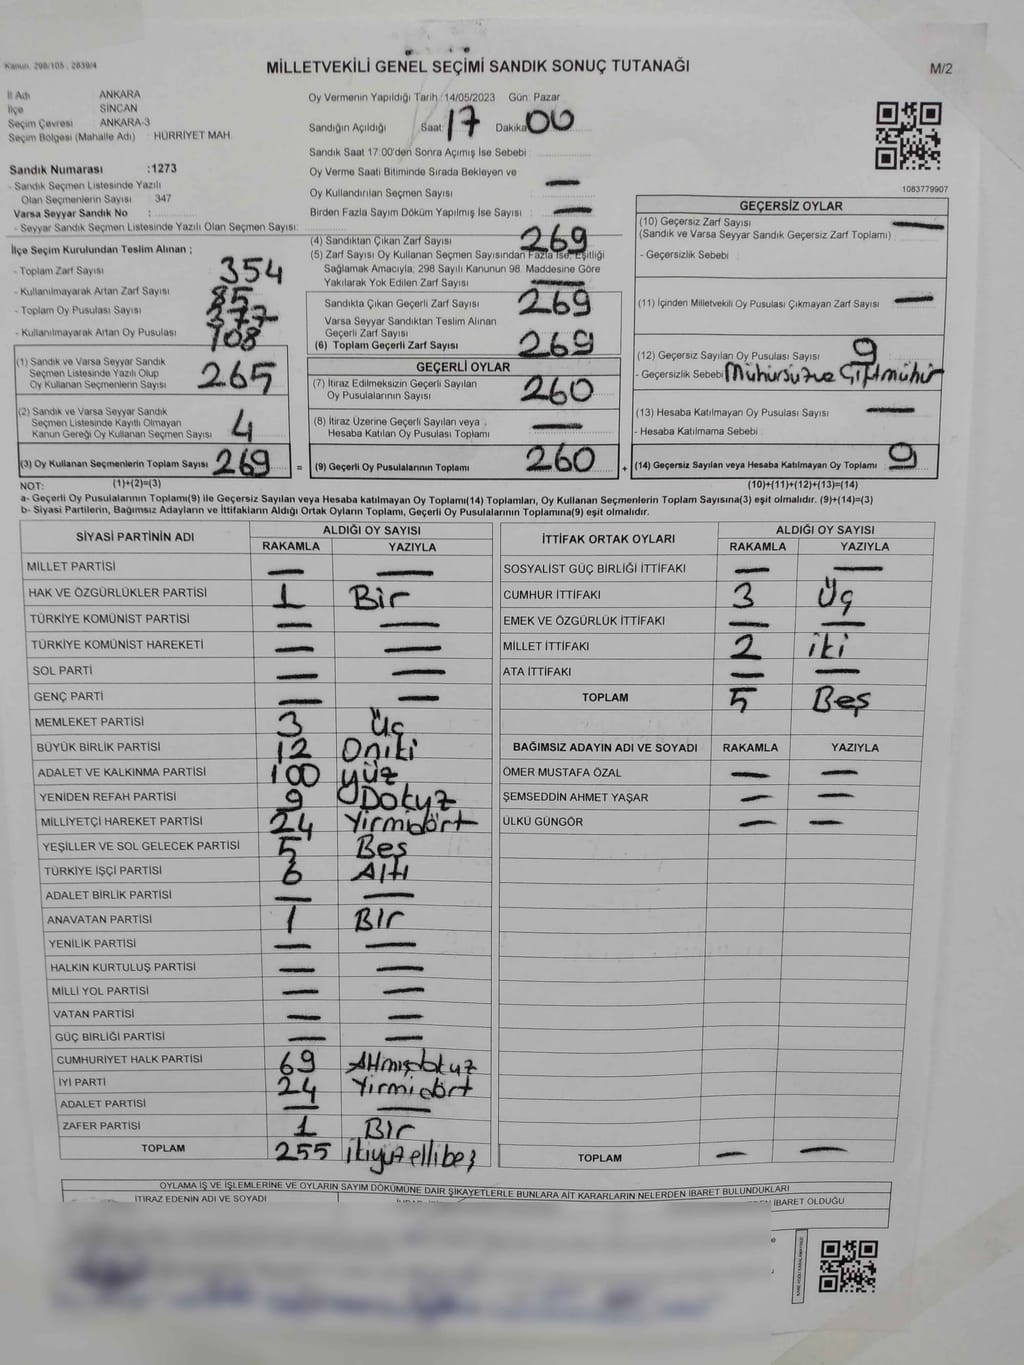 Kanun. 298/105 , 2839/4
MİLLETVEKİLİ GENEL SEÇİMİ SANDIK SONUÇ TUTANAĞI
M/2
İl Adı ANKARA
İlçe SİNCAN
Seçim Çevresi ANKARA-3
Seçim Bölgesi (Mahalle Adı) : HÜRRİYET MAH.
Sandık Numarası :1273
- Sandık Seçmen Listesinde Yazılı
Olan Seçmenlerin Sayısı 347
Varsa Seyyar Sandık No :
- Seyyar Sandık Seçmen Listesinde Yazılı Olan Seçmen Sayısı:
Oy Vermenin Yapıldığı Tarih :14/05/2023 Gün: Pazar
Sandığın Açıldığı Saat: 17 Dakika 00
Sandık Saat 17:00'den Sonra Açımış İse Sebebi
Oy Verme Saati Bitiminde Sırada Bekleyen ve
Oy Kullandırılan Seçmen Sayısı —
Birden Fazla Sayım Döküm Yapılmış İse Sayısı —
1083779907
İlçe Seçim Kurulundan Teslim Alınan ;
- Toplam Zarf Sayısı 354
- Kullanılmayarak Artan Zarf Sayısı 85
- Toplam Oy Pusulası Sayısı 377
- Kullanılmayarak Artan Oy Pusulası 108
(1) Sandık ve Varsa Seyyar Sandık
Seçmen Listesinde Yazılı Olup
Oy Kullanan Seçmenlerin Sayısı 265
(2) Sandık ve Varsa Seyyar Sandık
Seçmen Listesinde Kayıtlı Olmayan
Kanun Gereği Oy Kullanan Seçmen Sayısı 4
(3) Oy Kullanan Seçmenlerin Toplam Sayısı 269
(4) Sandıktan Çıkan Zarf Sayısı 269
(5) Zarf Sayısı Oy Kullanan Seçmen Sayısından Fazla İse, Eşitliği
Sağlamak Amacıyla, 298 Sayılı Kanunun 98. Maddesine Göre
Yakılarak Yok Edilen Zarf Sayısı —
Sandıkta Çıkan Geçerli Zarf Sayısı 269
Varsa Seyyar Sandıktan Teslim Alınan
Geçerli Zarf Sayısı
(6) Toplam Geçerli Zarf Sayısı 269
GEÇERLİ OYLAR
(7) İtiraz Edilmeksizin Geçerli Sayılan
Oy Pusulalarının Sayısı 260
(8) İtiraz Üzerine Geçerli Sayılan veya
Hesaba Katılan Oy Pusulası Toplamı —
= (9) Geçerli Oy Pusulalarının Toplamı 260
GEÇERSİZ OYLAR
(10) Geçersiz Zarf Sayısı —
(Sandık ve Varsa Seyyar Sandık Geçersiz Zarf Toplamı)
- Geçersizlik Sebebi
(11) İçinden Milletvekili Oy Pusulası Çıkmayan Zarf Sayısı —
(12) Geçersiz Sayılan Oy Pusulası Sayısı 9
- Geçersizlik Sebebi Mühürsüz ve Çift mühür
(13) Hesaba Katılmayan Oy Pusulası Sayısı —
- Hesaba Katılmama Sebebi
+ (14) Geçersiz Sayılan veya Hesaba Katılmayan Oy Toplamı 9
NOT: (1)+(2)=(3)
(10)+(11)+(12)+(13)=(14)
a- Geçerli Oy Pusulalarının Toplamı(9) ile Geçersiz Sayılan veya Hesaba katılmayan Oy Toplamı(14) Toplamları, Oy Kullanan Seçmenlerin Toplam Sayısına(3) eşit olmalıdır. (9)+(14)=(3)
b- Siyasi Partilerin, Bağımsız Adayların ve İttifakların Aldığı Ortak Oyların Toplamı, Geçerli Oy Pusulalarının Toplamına(9) eşit olmalıdır.
SİYASİ PARTİNİN ADI ALDIĞI OY SAYISI
RAKAMLA YAZIYLA
MİLLET PARTİSİ — —
HAK VE ÖZGÜRLÜKLER PARTİSİ 1 Bir
TÜRKİYE KOMÜNİST PARTİSİ — —
TÜRKİYE KOMÜNİST HAREKETİ — —
SOL PARTİ — —
GENÇ PARTİ — —
MEMLEKET PARTİSİ 3 Üç
BÜYÜK BİRLİK PARTİSİ 12 Oniki
ADALET VE KALKINMA PARTİSİ 100 yüz
YENİDEN REFAH PARTİSİ 9 Dokuz
MİLLİYETÇİ HAREKET PARTİSİ 24 Yirmidört
YEŞİLLER VE SOL GELECEK PARTİSİ 5 Beş
TÜRKİYE İŞÇİ PARTİSİ 6 Altı
ADALET BİRLİK PARTİSİ — —
ANAVATAN PARTİSİ 1 Bir
YENİLİK PARTİSİ — —
HALKIN KURTULUŞ PARTİSİ — —
MİLLİ YOL PARTİSİ — —
VATAN PARTİSİ — —
GÜÇ BİRLİĞİ PARTİSİ — —
CUMHURİYET HALK PARTİSİ 69 Altmışdokuz
İYİ PARTİ 24 Yirmidört
ADALET PARTİSİ — —
ZAFER PARTİSİ 1 Bir
TOPLAM 255 ikiyüzellibeş
İTTİFAK ORTAK OYLARI ALDIĞI OY SAYISI
RAKAMLA YAZIYLA
SOSYALİST GÜÇ BİRLİĞİ İTTİFAKI — —
CUMHUR İTTİFAKI 3 Üç
EMEK VE ÖZGÜRLÜK İTTİFAKI — —
MİLLET İTTİFAKI 2 iki
ATA İTTİFAKI — —
TOPLAM 5 Beş
BAĞIMSIZ ADAYIN ADI VE SOYADI RAKAMLA YAZIYLA
ÖMER MUSTAFA ÖZAL — —
ŞEMSEDDİN AHMET YAŞAR — —
ÜLKÜ GÜNGÖR — —
TOPLAM — —
OYLAMA İŞ VE İŞLEMLERİNE VE OYLARIN SAYIM DÖKÜMÜNE DAİR ŞİKAYETLERLE BUNLARA AİT KARARLARIN NELERDEN İBARET BULUNDUKLARI
İTİRAZ EDENİN ADI VE SOYADI
İBARET OLDUĞU